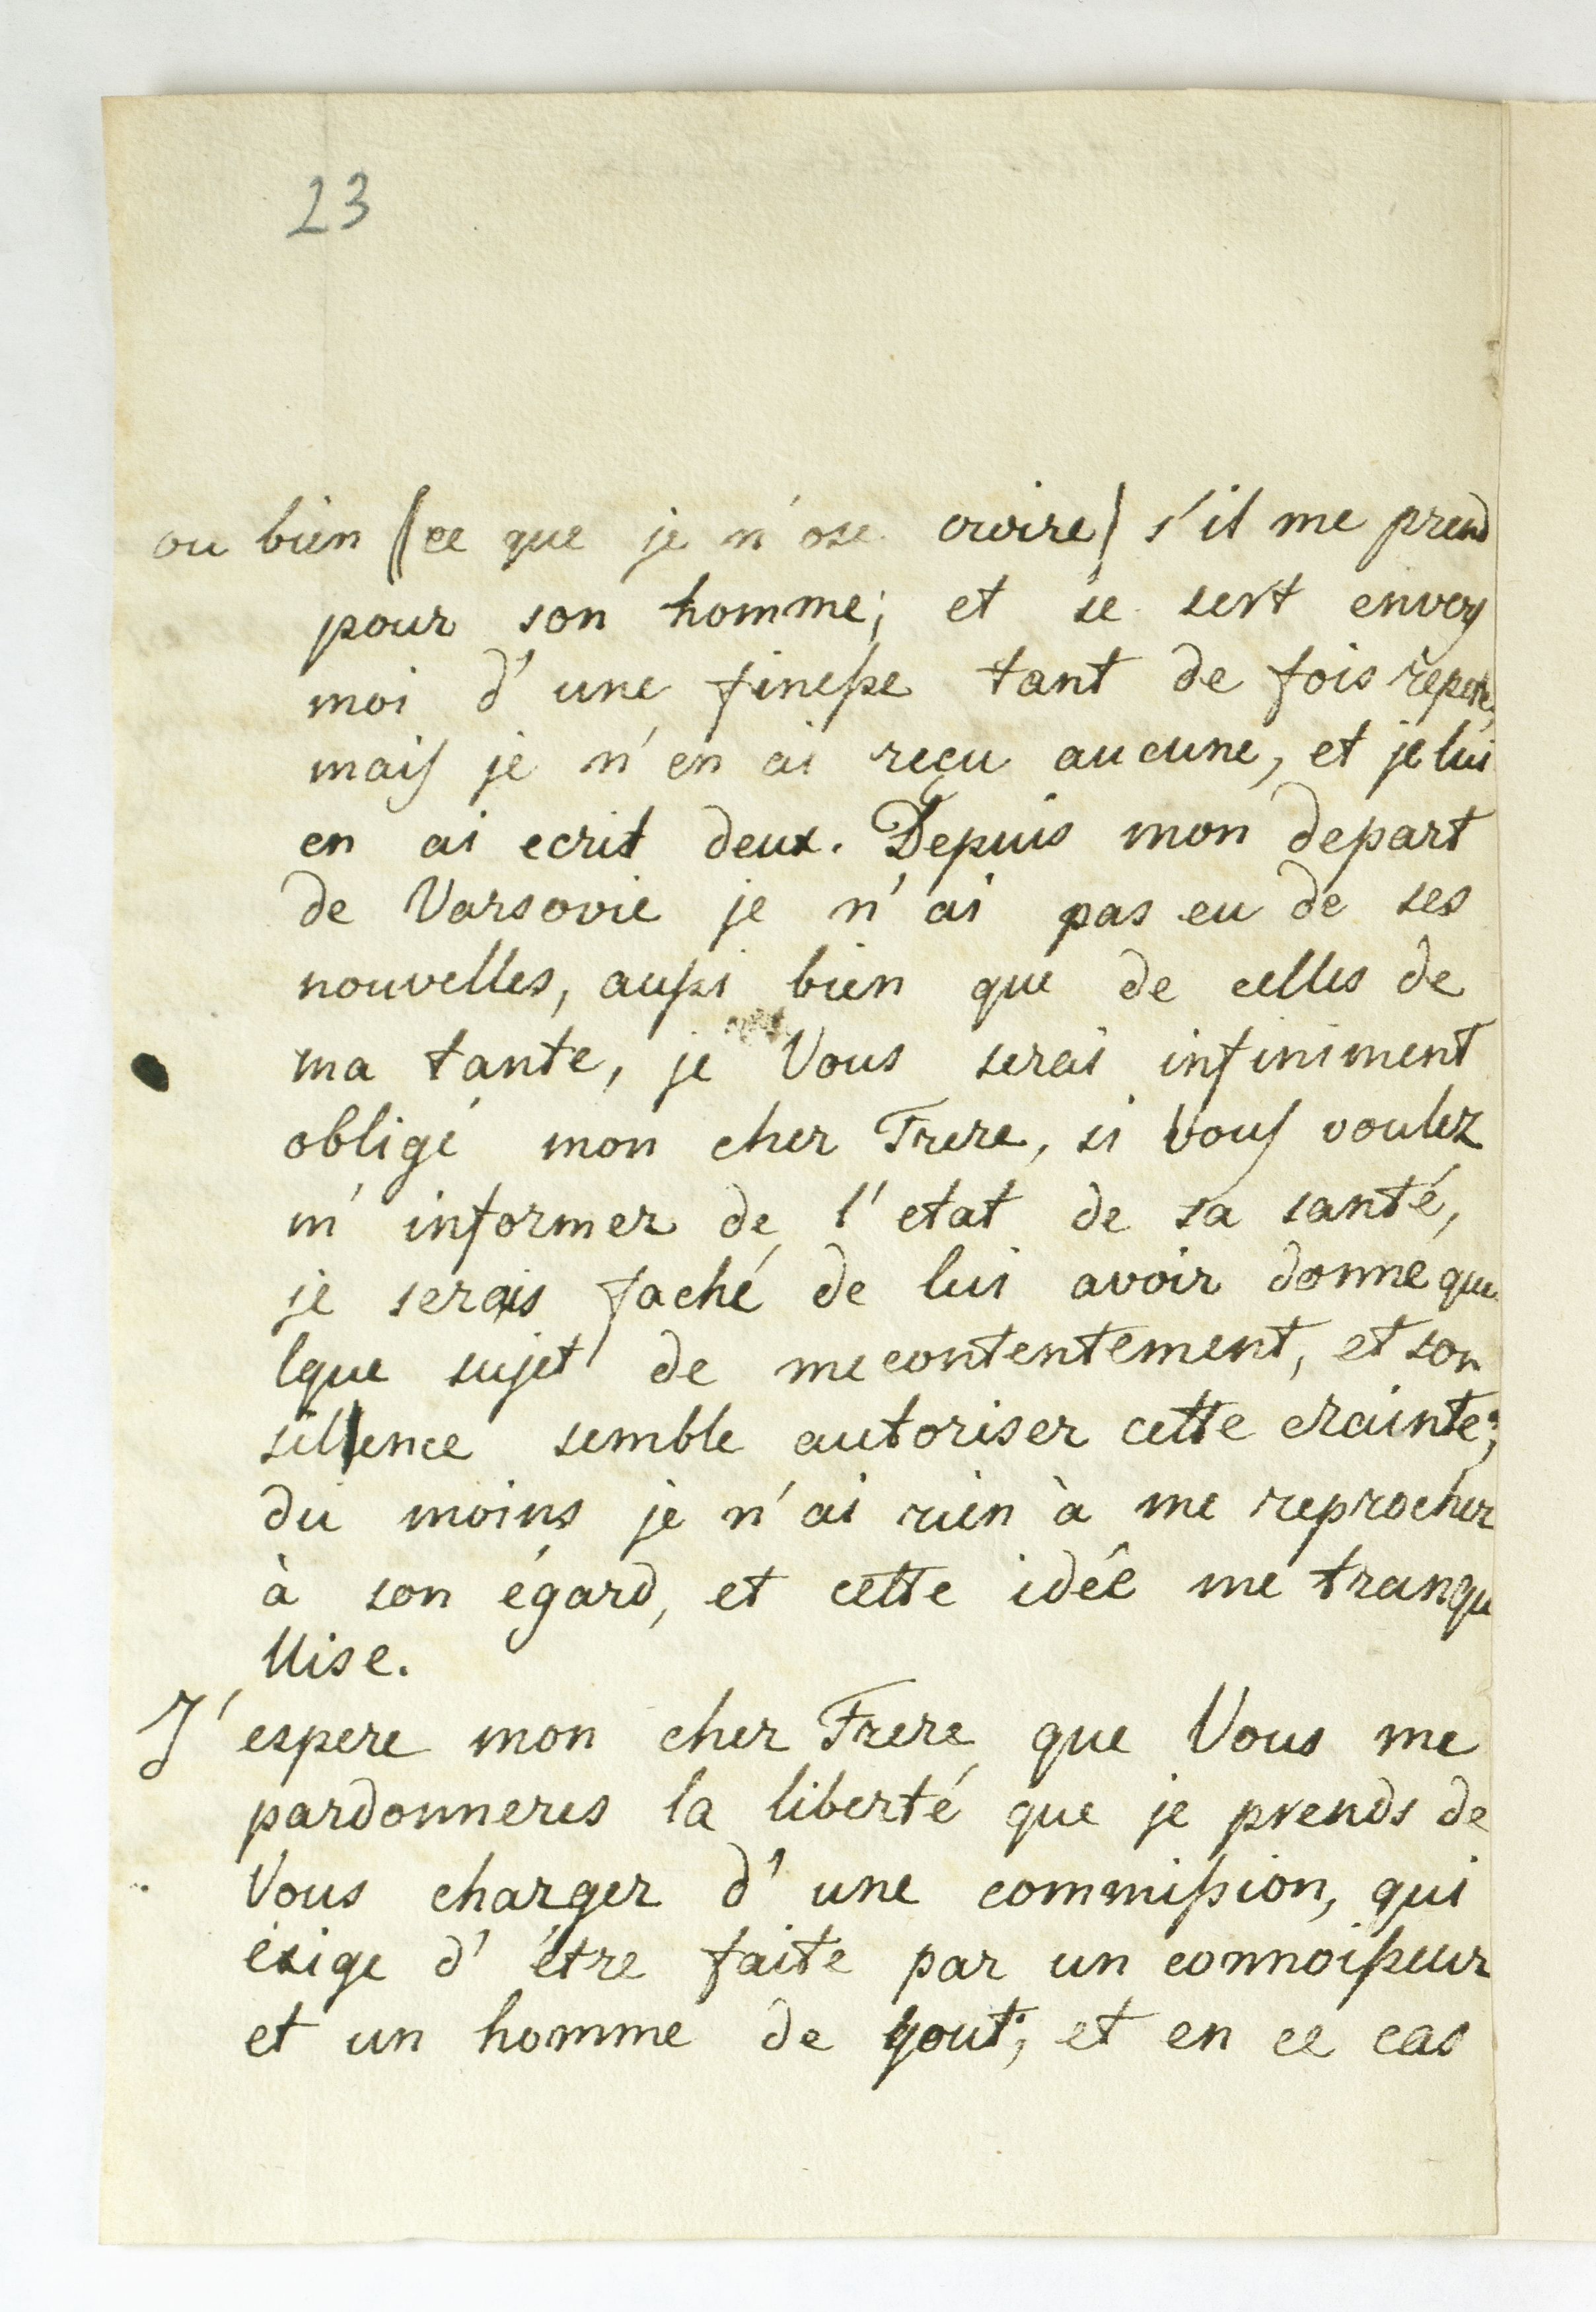 23
ou bien (ce que je n'ose croire) s'il me prend
pour son homme; et se sert envers
moi d'une finesse tant de fois repeté,
mais je n'en ai reçu aucune, et je lui
en ai ecrit deux. Depuis mon depart
de Varsovie je n'ai pas eu de ses
nouvelles, aussi bien que de celles de
ma tante, je Vous serai infiniment
obligé mon cher Frere, si Vous voulez
m'informer de l'etat de sa santé,
je serais faché de lui avoir donné que
lque sujet de mecontentement, et son
sillence semble autoriser cette crainte;
du moins je n'ai rien à me reprocher
à son égard, et cette idée me tranqu
llise.
J'espere mon cher Frere que Vous me
pardonneres la liberté que je prends de
Vous charger d'une commission, qui
éxige d'étre faite par un connoisseur
et un homme de gout; et en ce cas